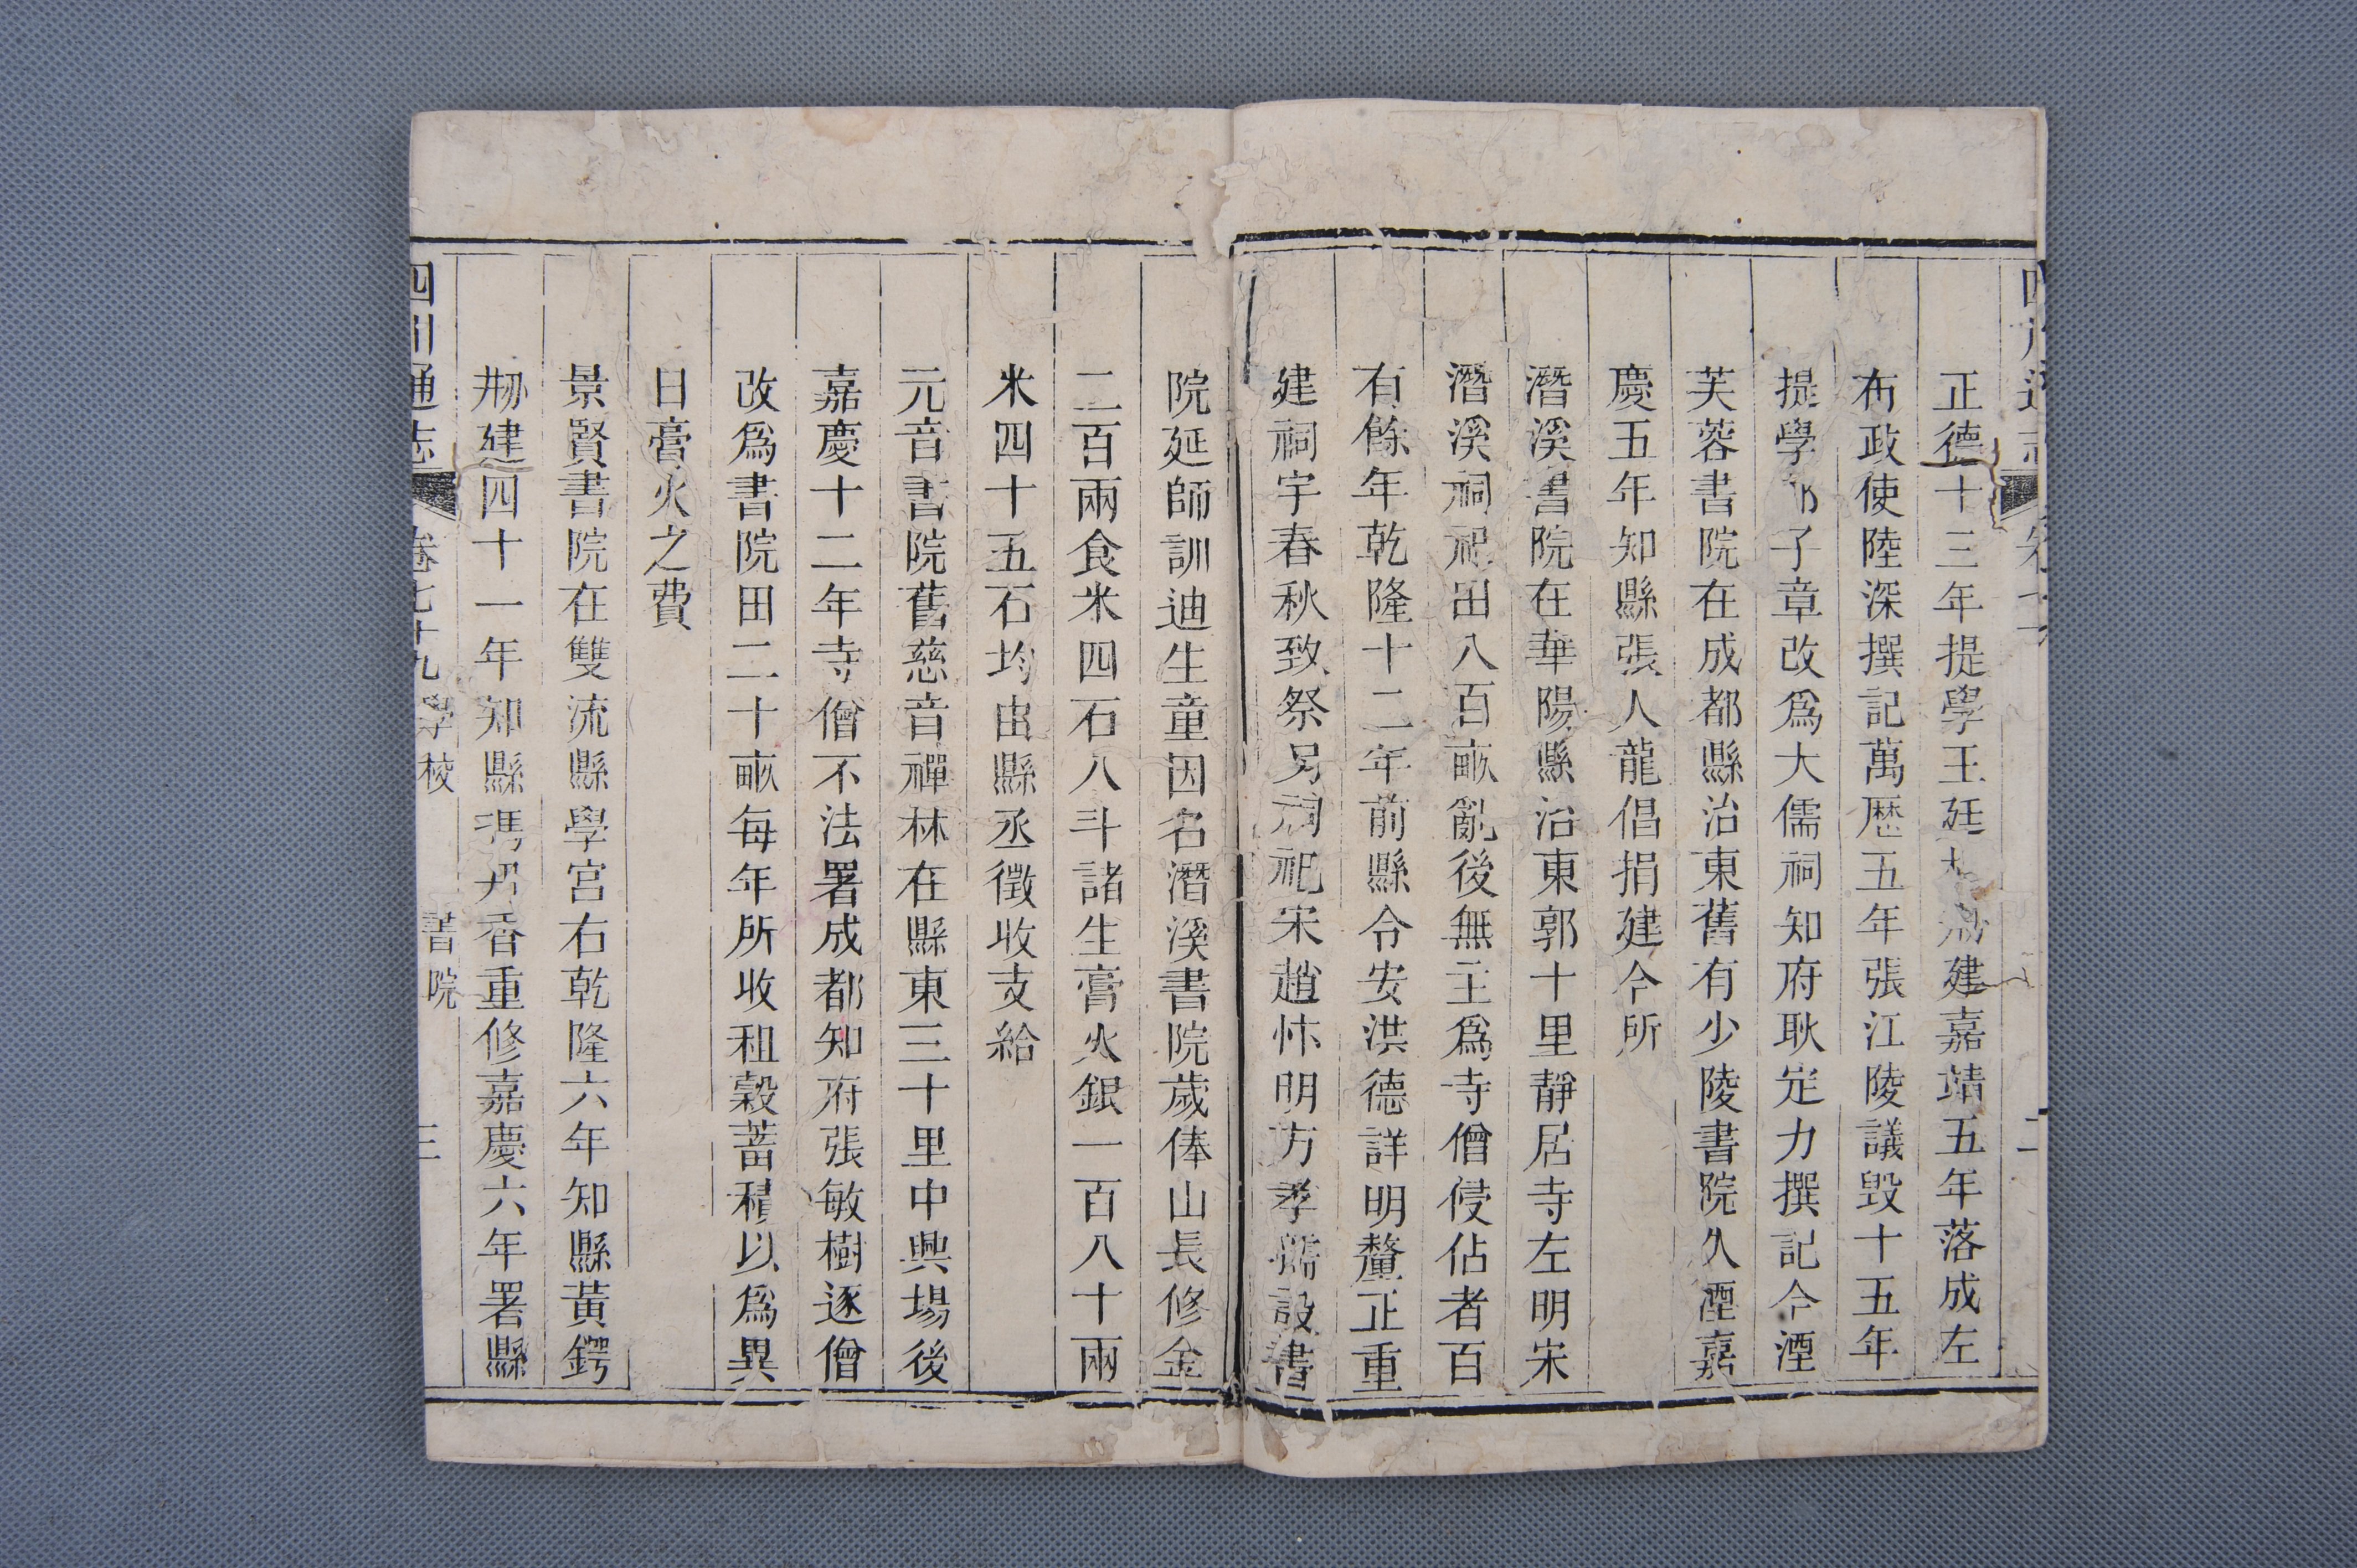 正德十三年提學王廷建嘉靖五年落成左
布政使陸深撰記萬歷五年張江陵議毀十五年
提學子章改爲大儒祠知府耿定力撰記今湮
芙蓉書院在成都縣治東舊有少陵書院久湮嘉
慶五年知縣張人龍倡捐建今所
潛溪書院在華陽縣治東郭十里靜居寺左明宋
潛溪祠祀田八百畝亂後無主爲寺僧侵佔者百
有餘年乾隆十二年前縣令安洪德詳明釐正重
建祠宇春秋致祭另祠祀宋趙忭明方孝孺設書
院延師訓迪生童因名潛溪書院歲俸山長修金
二百兩食米四石八斗諸生膏火銀一百八十兩
米四十五石均由縣丞徵收支給
元音書院舊慈音禪林在縣東三十里中興場後
嘉慶十二年寺僧不法署成都知府張敏樹逐僧
改爲書院田二十畝每年所收租穀蓄積以爲異
日膏火之費
景賢書院在雙流縣學宮右乾隆六年知縣黃鍔
剏建四十一年知縣香重修嘉慶六年署縣
四川通志 卷七十九學校 書院 三